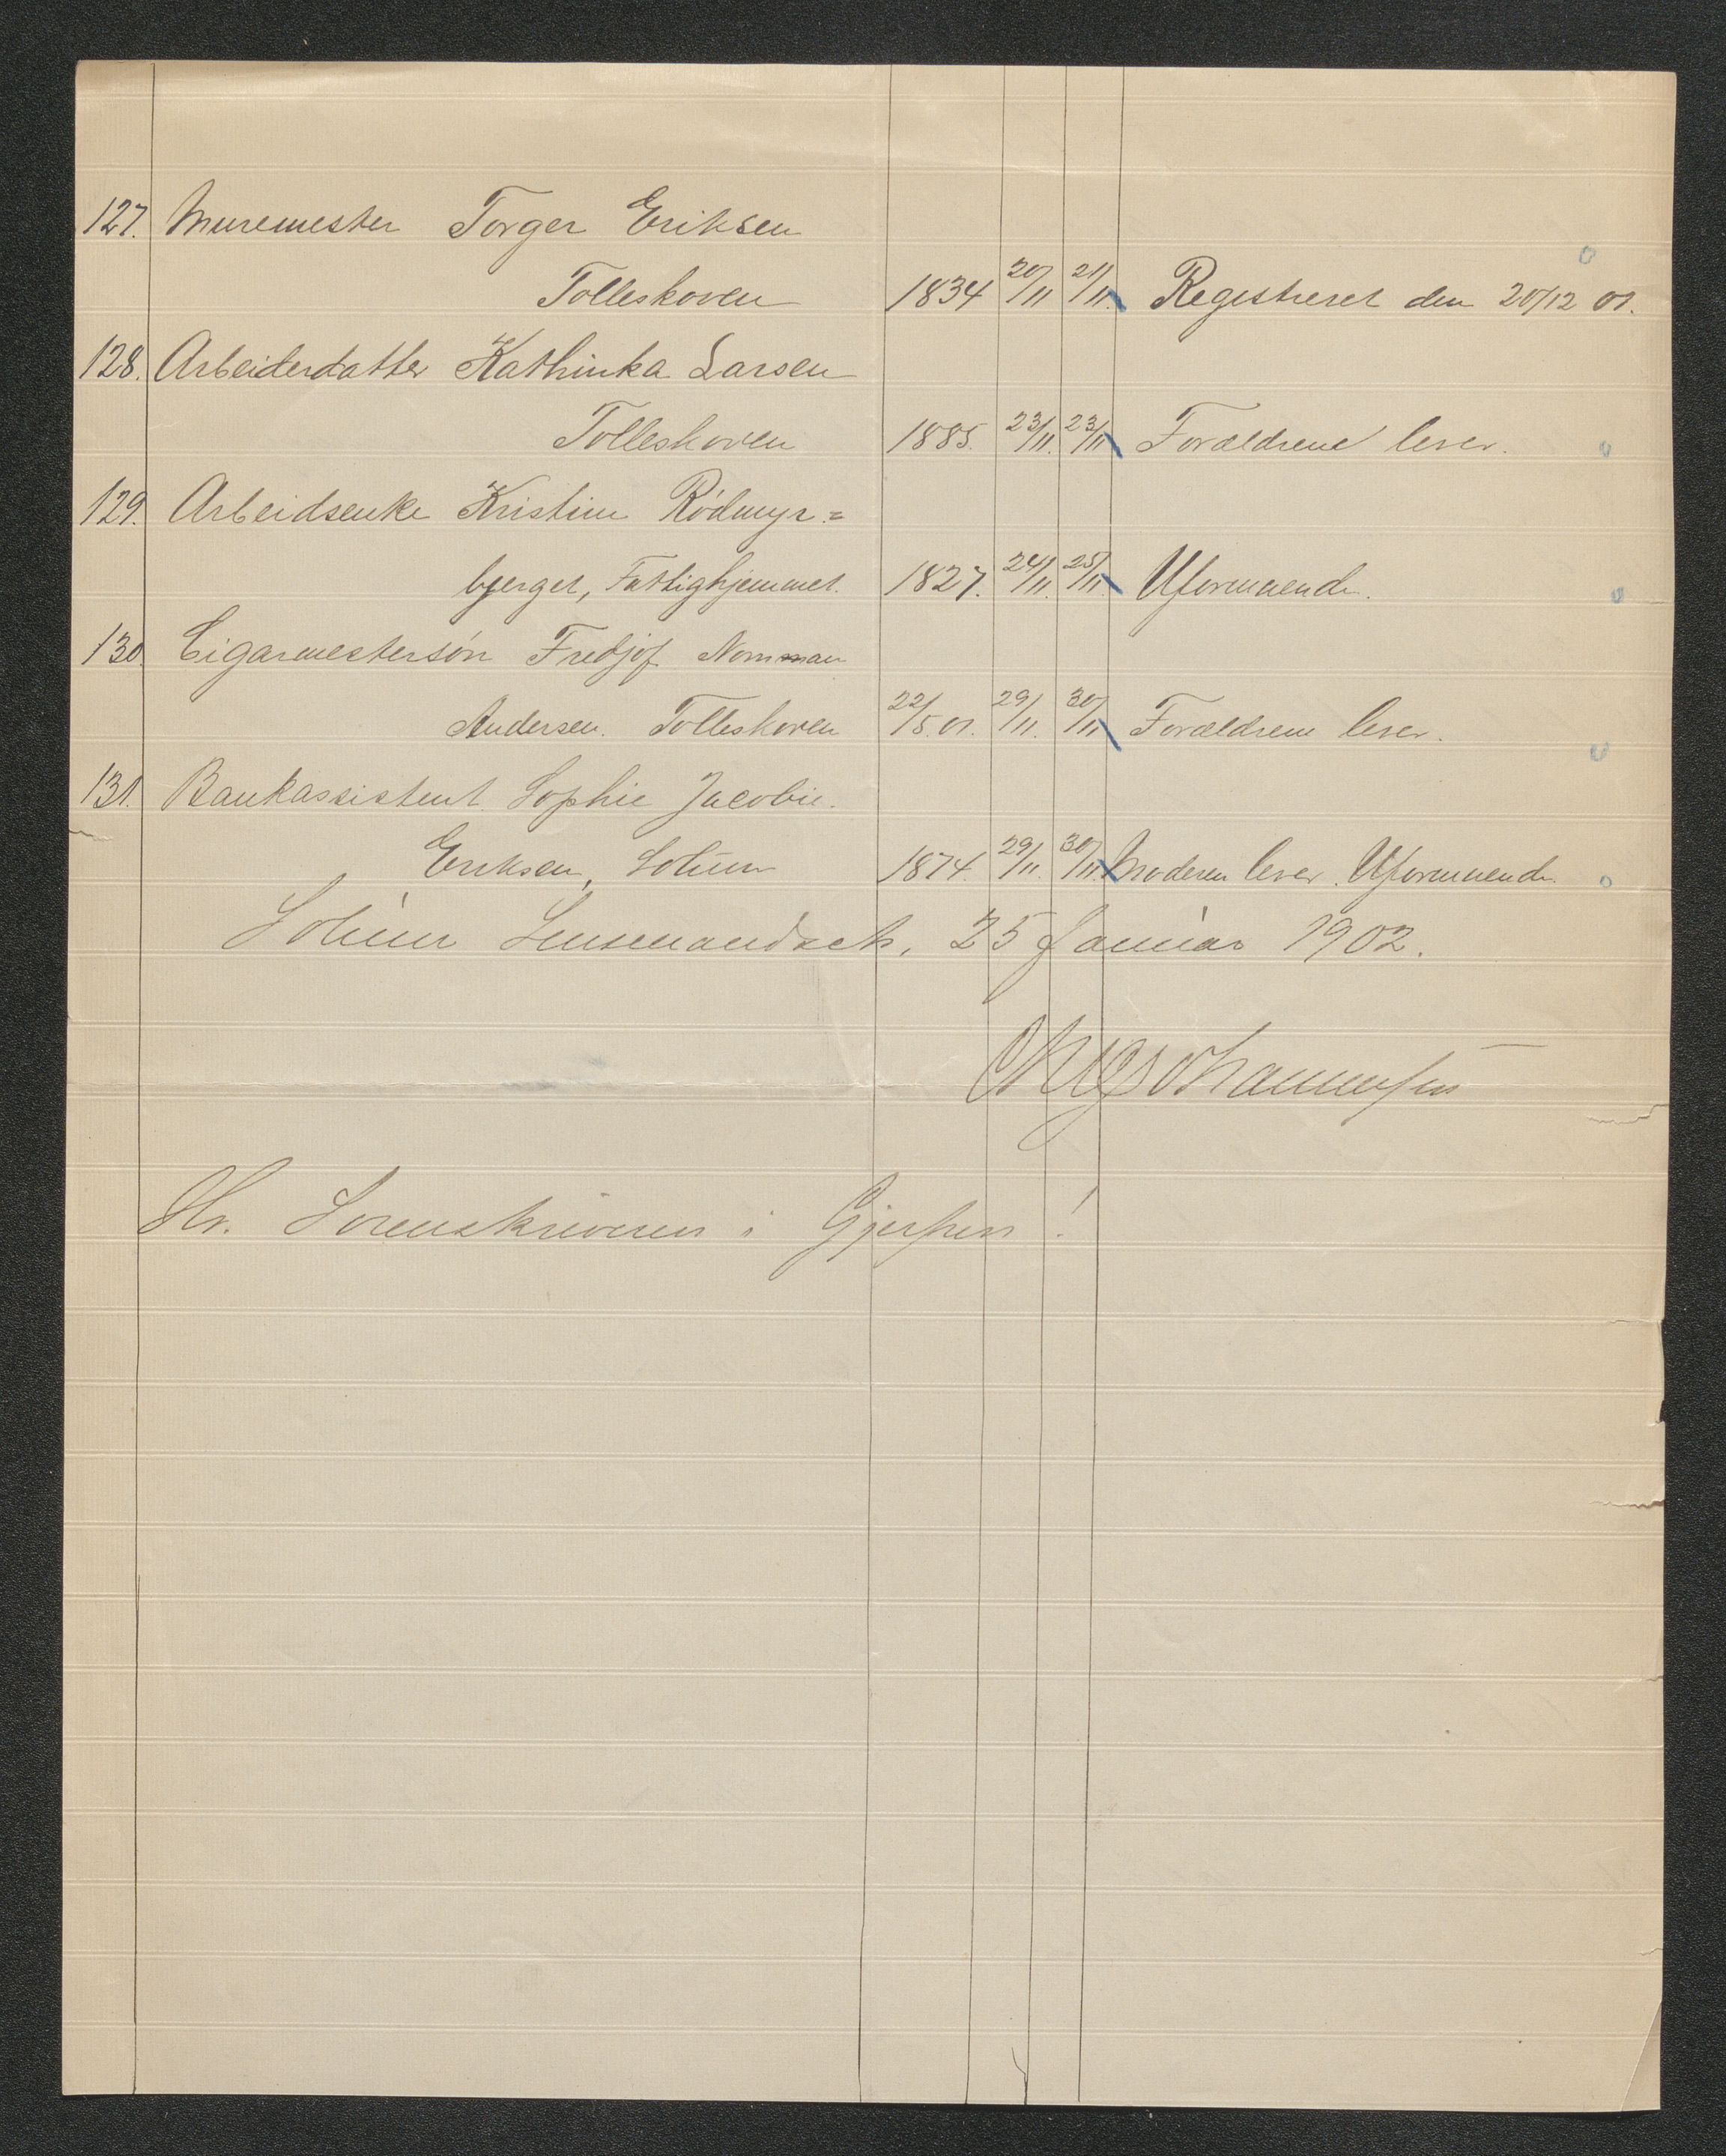 127. Muremester Torger Eriksen
Tolleskoven 1834 20/11 21/11. Registreret den 20/12 01.
128. Arbeiderdatter Kathinka Larsen
Tolleskoven 1885. 23/11. 23/11 Forældrene lever.
129. Arbeidsenke Kristine Rödmyr=
bjerget, Fattighjemmet. 1827. 24/11. 25/11. Uformuende.
130. Cigarmestersön Fredjof Norman
Andersen. Tolleskoven 22/5.01. 29/11. 30/11 Forældrene lever.
131. Bankassistent Sophie Jacobie.
Eriksen, Solum 1874. 29/11. 30/11. Moderen lever. Uformuende.
Solum Lensmandsek, 25 Januar 1902.
Hr. Sorenskriveren i Gjerpen!